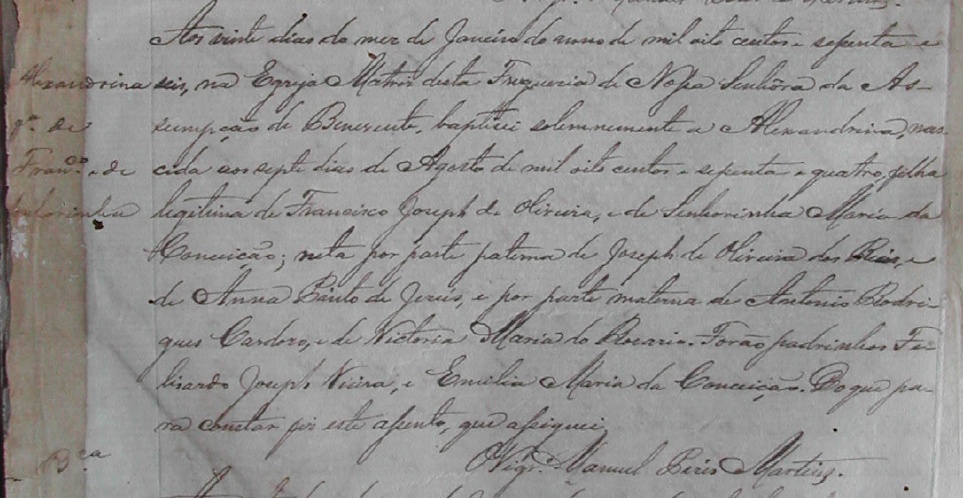 Aos vinte dias do mez de Janeiro do anno de mil oito centos e septenta e
Alexandrina
seis, na Egreja Matriz desta Freguezia de Nossa Senhora da As-
fª. de
sumpção de Benevente, baptisei solemnemente a Alexandrina, nas-
Franco. e de
cida aos septe dias de Agosto de mil oito centos e septenta e quatro, filha
legitima de Francisco Joseph de Oliveira, e de Senhorinha Maria da
Conceição; neta por parte paterna de Joseph de Oliveira dos Reis, e
de Anna Pinto de Jesus, e por parte materna de Antonio Rodri-
gues Cardozo, e de Victoria Maria do Rosario. Forão padrinhos Fe-
lisardo Joseph Vieira, e Emilia Maria da Conceição. Do que pa-
ra constar fiz este assento, que assignei.
O Vigrº. Manuel Pires Martins.